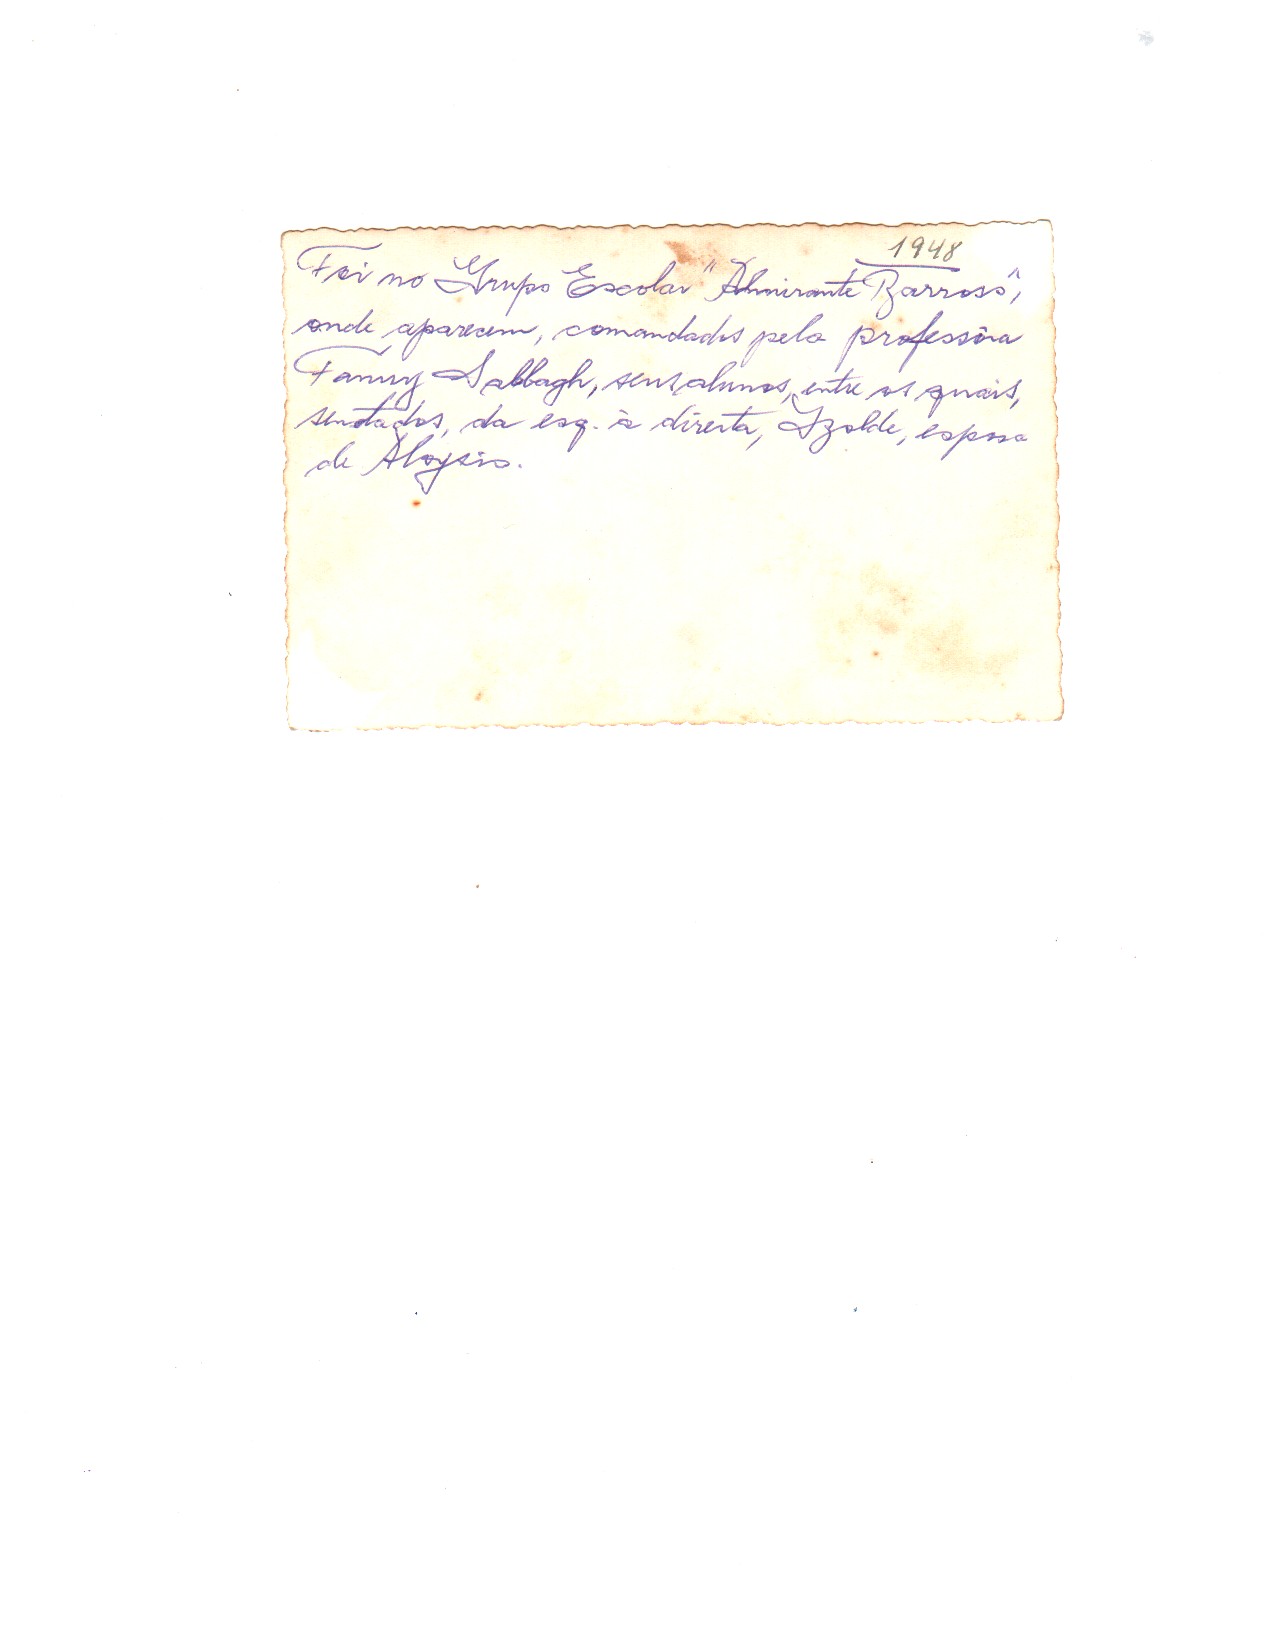 1948
Foi no Grupo Escolar "Almirante Barroso",
onde aparecem, comandados pela professôra
Fanny Sabbagh, seus alunos, entre os quais,
sentados, da esq. à direita, Izolde, esposa
de Aloysio.